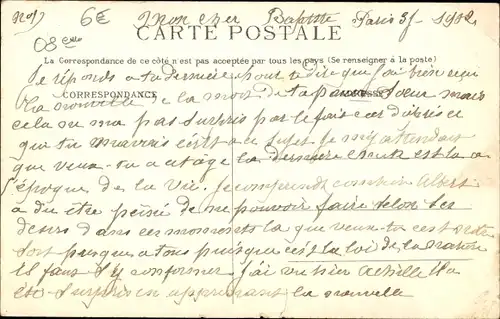 No 7 6€ Mon cher Baptiste Paris 3/ 1912
08
CARTE POSTALE
La Correspondance de ce côté n'est pas acceptée par tous les pays (Se renseigner à la poste)
Je réponds a ta dernière pour te dire que j'ai bien reçu
CORRESPONDANCE
la nouvelle de la mort de ta pauvre Sœur mais
cela ne ma pas surpris par le fait car d'après ce
que tu mavais écrit a ce sujet Je m'y attendais
que veux-tu a cet age la dernière est la
l'époque de la Vie. Je comprends combien Albert
a du être peiné de ne pouvoir faire selon ses
désirs dans ces moments la que veux-tu c'est notre
sort presque a tous puisque c'est la loi de la nature
il faut s'y conformer j'ai vu hier Achille Il a
été surpris en apprenant la nouvelle